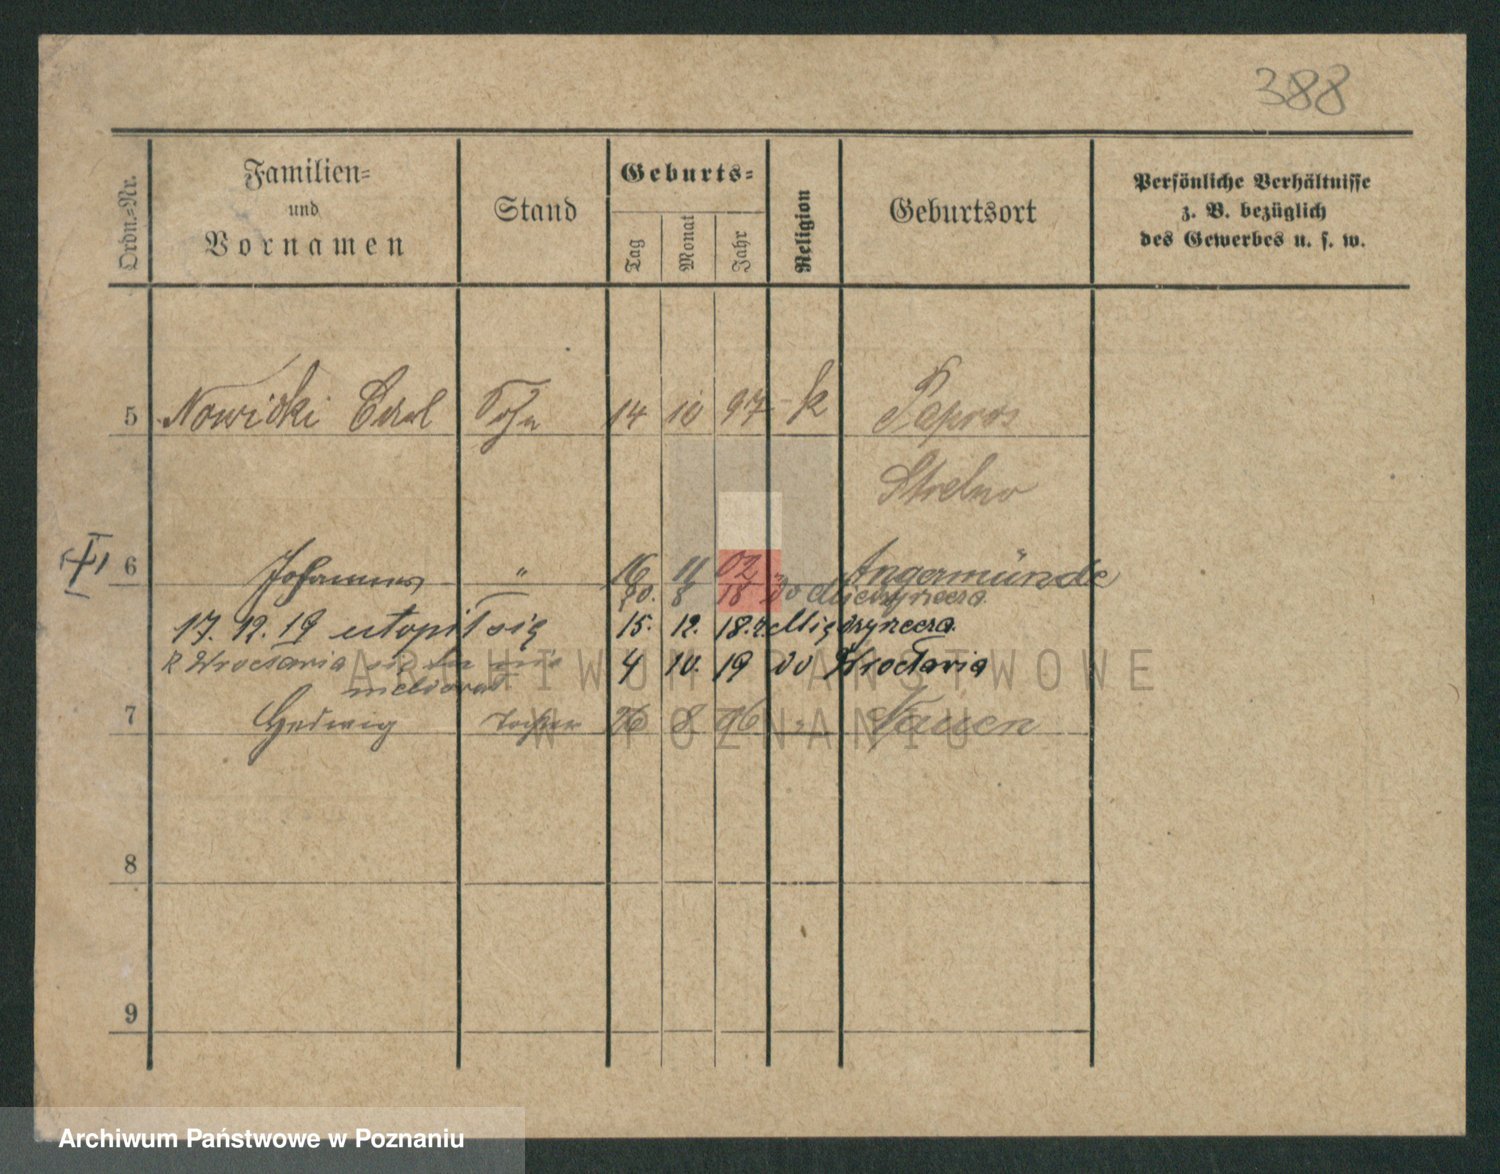 388
Ordn.=Nr.
Familien=
und
Vornamen
Stand
Geburts=
Tag Monat Jahr
Religion
Geburtsort
Persönliche Verhältnisse
z. B. bezüglich
des Gewerbes u. s. w.
5 Nowicki Carl Sohn 14 10 97 k
Strelno
6 Johannes " 16 11 02 " Angermünde
20. 8 18 do
17. 12. 19 utopił się 15. 12. 18. z
4 10. 19 do Wrocławia
7 Hedwig Tochter 26 8. 96 " Nauen
8
9
ARCHIWUM PAŃSTWOWE
W POZNANIU
Archiwum Państwowe w Poznaniu